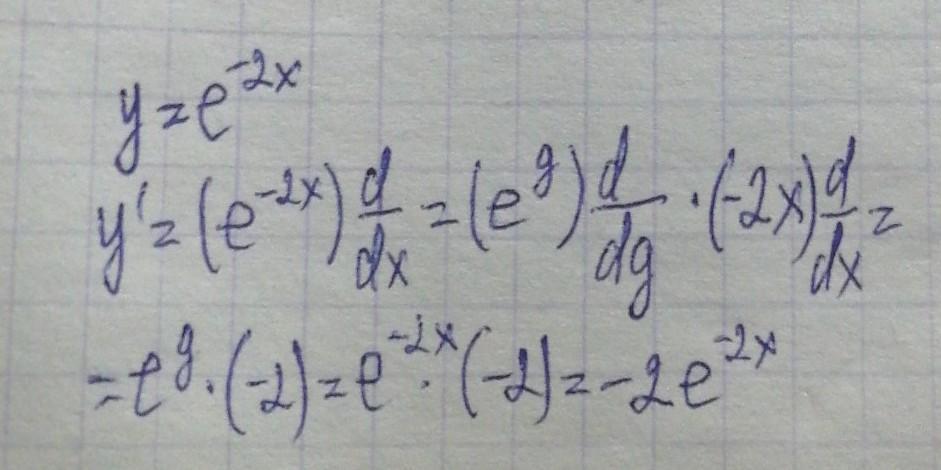 y = e^{-2x}
y' = (e^{-2x}) \frac{d}{dx} = (e^g) \frac{d}{dg} · (-2x) \frac{d}{dx} =
= e^g · (-2) = e^{-2x} · (-2) = -2e^{-2x}